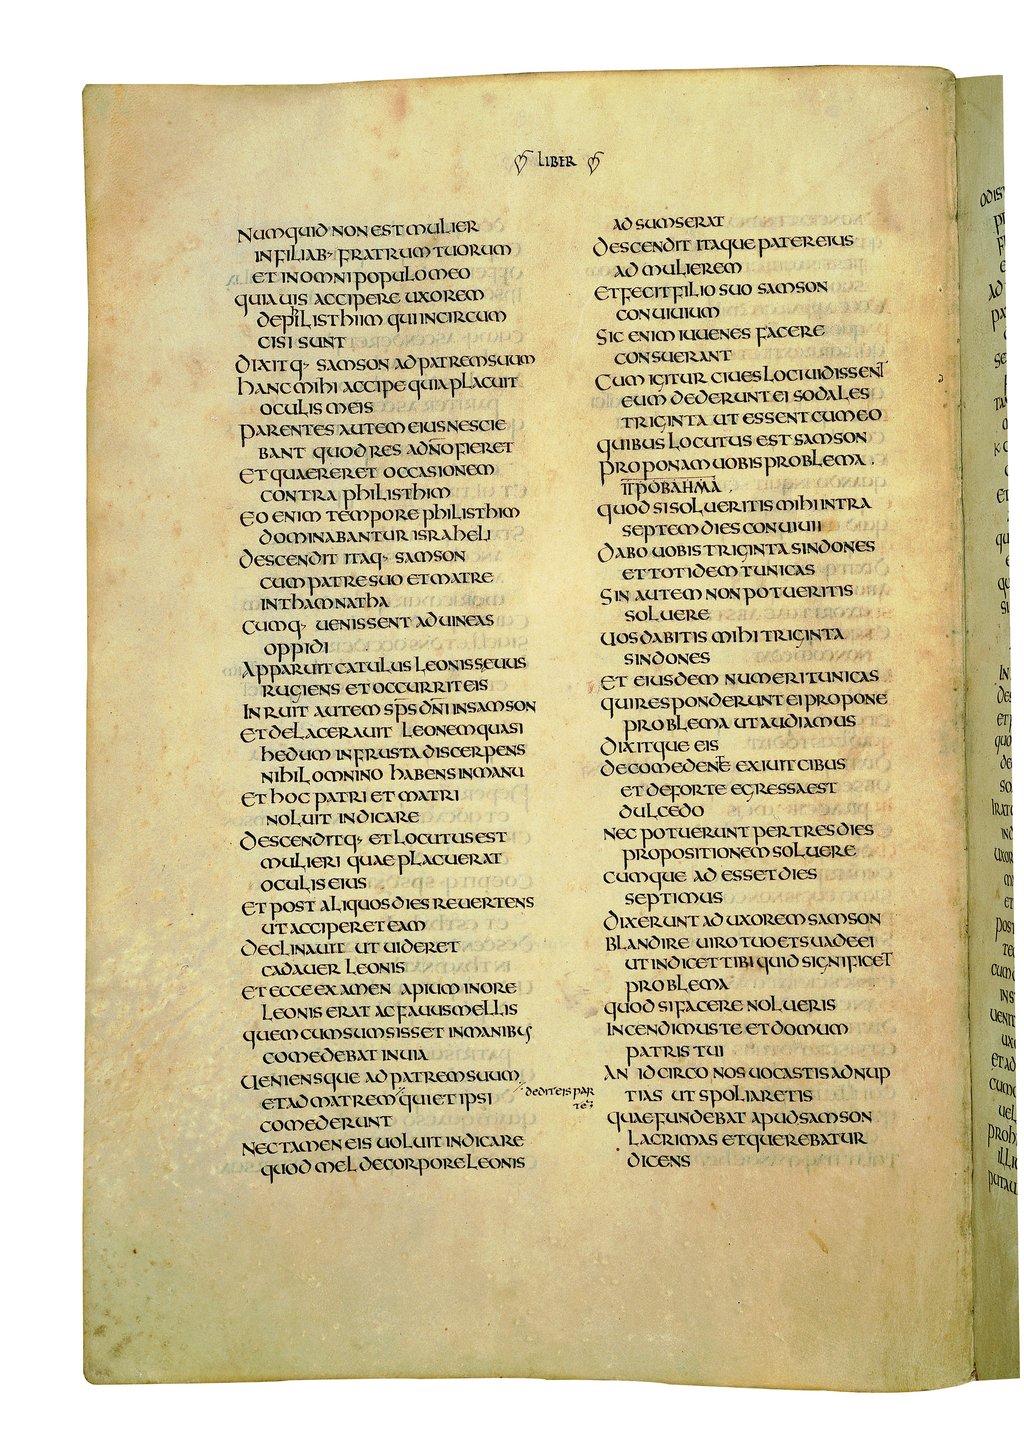 LIBER
NUMQUID NON EST MULIER
IN FILIAB· FRATRUM TUORUM
ET IN OMNI POPULO MEO
QUIA UIS ACCIPERE UXOREM
DE PILISTHIIM QUI INCIRCUM
CISI SUNT
DIXITQ· SAMSON AD PATREM SUUM
HANC MIHI ACCIPE QUIA PLACUIT
OCULIS MEIS
PARENTES AUTEM EIUS NESCIE
BANT QUOD RES A DÑO FIERET
ET QUAERERET OCCASIONEM
CONTRA PHILISTHIM
EO ENIM TEMPORE PHILISTHIM
DOMINABANTUR ISRAHELI
DESCENDIT ITAQ· SAMSON
CUM PATRE SUO ET MATRE
IN THAMNATHA
CUMQ· UENISSENT AD UINEAS
OPPIDI
APPARUIT CATULUS LEONIS SEUUS
RUGIENS ET OCCURRIT EIS
INRUIT AUTEM SP̅S DN̅I IN SAMSON
ET DELACERAUIT LEONEM QUASI
HEDUM IN FRUSTA DISCERPENS
NIHIL OMNINO HABENS IN MANU
ET HOC PATRI ET MATRI
NOLUIT INDICARE
DESCENDITQ· ET LOCUTUS EST
MULIERI QUAE PLACUERAT
OCULIS EIUS
ET POST ALIQUOS DIES REUERTENS
UT ACCIPERET EAM
DECLINAUIT UT UIDERET
CADAUER LEONIS
ET ECCE EXAMEN APIUM IN ORE
LEONIS ERAT AC FAUUS MELLIS
QUEM CUM SUMSISSET IN MANIBUS
COMEDEBAT IN UIA
UENIENSQUE AD PATREM SUUM
ET AD MATREM QUI ET IPSI
DEDIT EIS PAR
TE
COMEDERUNT
NEC TAMEN EIS UOLUIT INDICARE
QUOD MEL DE CORPORE LEONIS
ADSUMSERAT
DESCENDIT ITAQUE PATER EIUS
AD MULIEREM
ET FECIT FILIO SUO SAMSON
CONUIUIUM
SIC ENIM IUUENES FACERE
CONSUERANT
CUM IGITUR CIUES LOCI UIDISSENT
EUM DEDERUNT EI SODALES
TRIGINTA UT ESSENT CUM EO
QUIBUS LOCUTUS EST SAMSON
PROPONAM UOBIS PROBLEMA .
ΠΡΟΒΛΗΜΑ .
QUOD SI SOLUERITIS MIHI INTRA
SEPTEM DIES CONUIUII
DABO UOBIS TRIGINTA SINDONES
ET TOTIDEM TUNICAS
SIN AUTEM NON POTUERITIS
SOLUERE
UOS DABITIS MIHI TRIGINTA
SINDONES
ET EIUSDEM NUMERI TUNICAS
QUI RESPONDERUNT EI PROPONE
PROBLEMA UT AUDIAMUS
DIXITQUE EIS
DE COMEDENTE EXIUIT CIBUS
ET DE FORTE EGRESSA EST
DULCEDO
NEC POTUERUNT PER TRES DIES
PROPOSITIONEM SOLUERE
CUMQUE ADESSET DIES
SEPTIMUS
DIXERUNT AD UXOREM SAMSON
BLANDIRE UIRO TUO ET SUADE EI
UT INDICET TIBI QUID SIGNIFICET
PROBLEMA
QUOD SI FACERE NOLUERIS
INCENDIMUS TE ET DOMUM
PATRIS TUI
AN IDCIRCO NOS UOCASTIS AD NUP
TIAS UT SPOLIARETIS
QUAE FUNDEBAT APUD SAMSON
LACRIMAS ET QUEREBATUR
DICENS